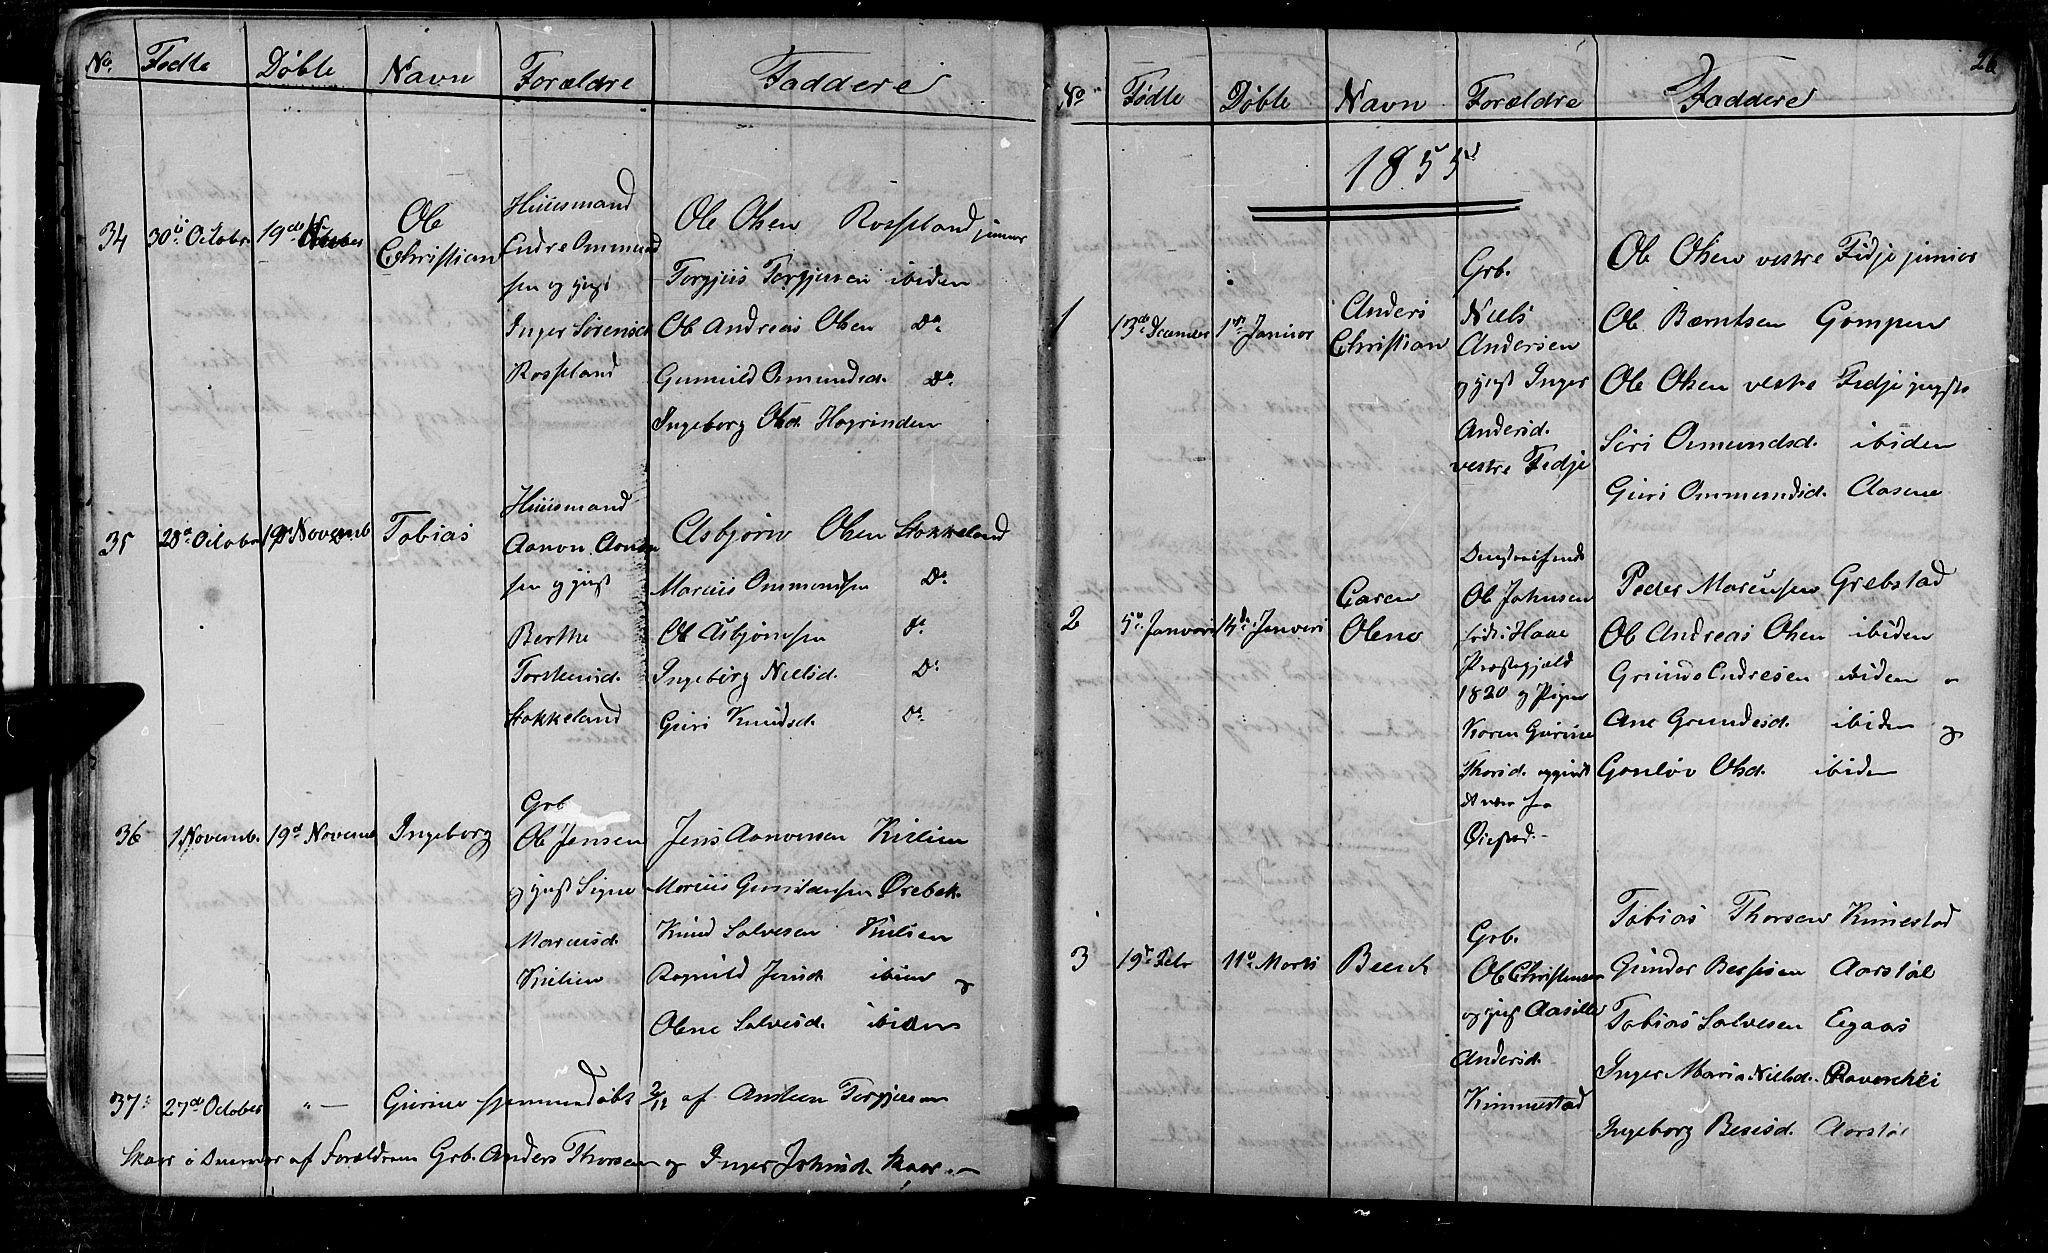 No. Fødte Døbte Navn Forældre Faddere
34 30te Octobr 19de Ole Christian
Huusmand
Endre Ommund
sen og hust
Inger Sørensd
Rosseland
Ole Olsen Rosseland junior
Torgjus Torgjusen ibiden
Ole Andreas Olsen Do
Gunuld Omundsd. Do
Ingeborg Olsd. Høgrinden
35 28de Octobr 19de Novemb Tobias
Huusmand
Aanon Aanon
sen og hust
Berthe
Torkelsd.
Stokkeland
Asbjørn Olsen Stokkeland
Marcus Ommundsen Do
Ole Asbjørnsen Do
Ingebörg Nielsd. Do
Guri Knudsd. Do
36 1 Novemb. 19d Novemb Ingeborg
Grb
Ole Jensen
og hust Signe
Marcusd.
Kulien
Jens Aanonsen Kulien
Marcus Gundersen Ørebek.
Knud Salvesen Kulien
Ragnild Jensd. ibiden og
Olene Salvesd. ibiden
37 27de October " — Gurine hjemmedøbt 2/12 af Torgjusen
Skaar af Forældrene Grb. Anders Thorsen og Inger Johnsd. Skaar. —
26
No Fødte Døbte Navn Forældre Faddere
1855
1 13de December 1ste Januar Anders Christian
Grb.
Niels
Andersen
og hust Inger
Andersd.
vestre Fidje
Ole Olsen vestre Fidje junior
Ole Berntsen Gompen
Ole Olsen vestre Fidje yngste
Siri Osmundsd. ibiden
Guri Ommundsd. Aasene
2 5te Januari 14de Januari Caren Olene
Ungkarl
Ole Johnsen
født i
Præstegjeld
1820 og Pigen
Karen Gurine
Thorsd.
Øiestad. -
Peder Marcussen Grebstad
Ole Andreas Olsen ibiden
Grunde Endresen ibiden
Ane Grundesd. ibiden og
Gonløv Olsd. ibiden
3 19de Febr 11te Marts
Grb.
Ole Christensen
og hust Aasille
Andersd.
Kimmestad
Tobias Thorsen Kimestad
Gunder Aarstøl
Tobias Salvesen Egaas
Inger Maria Nielsd.
Ingeborg Aarstøl